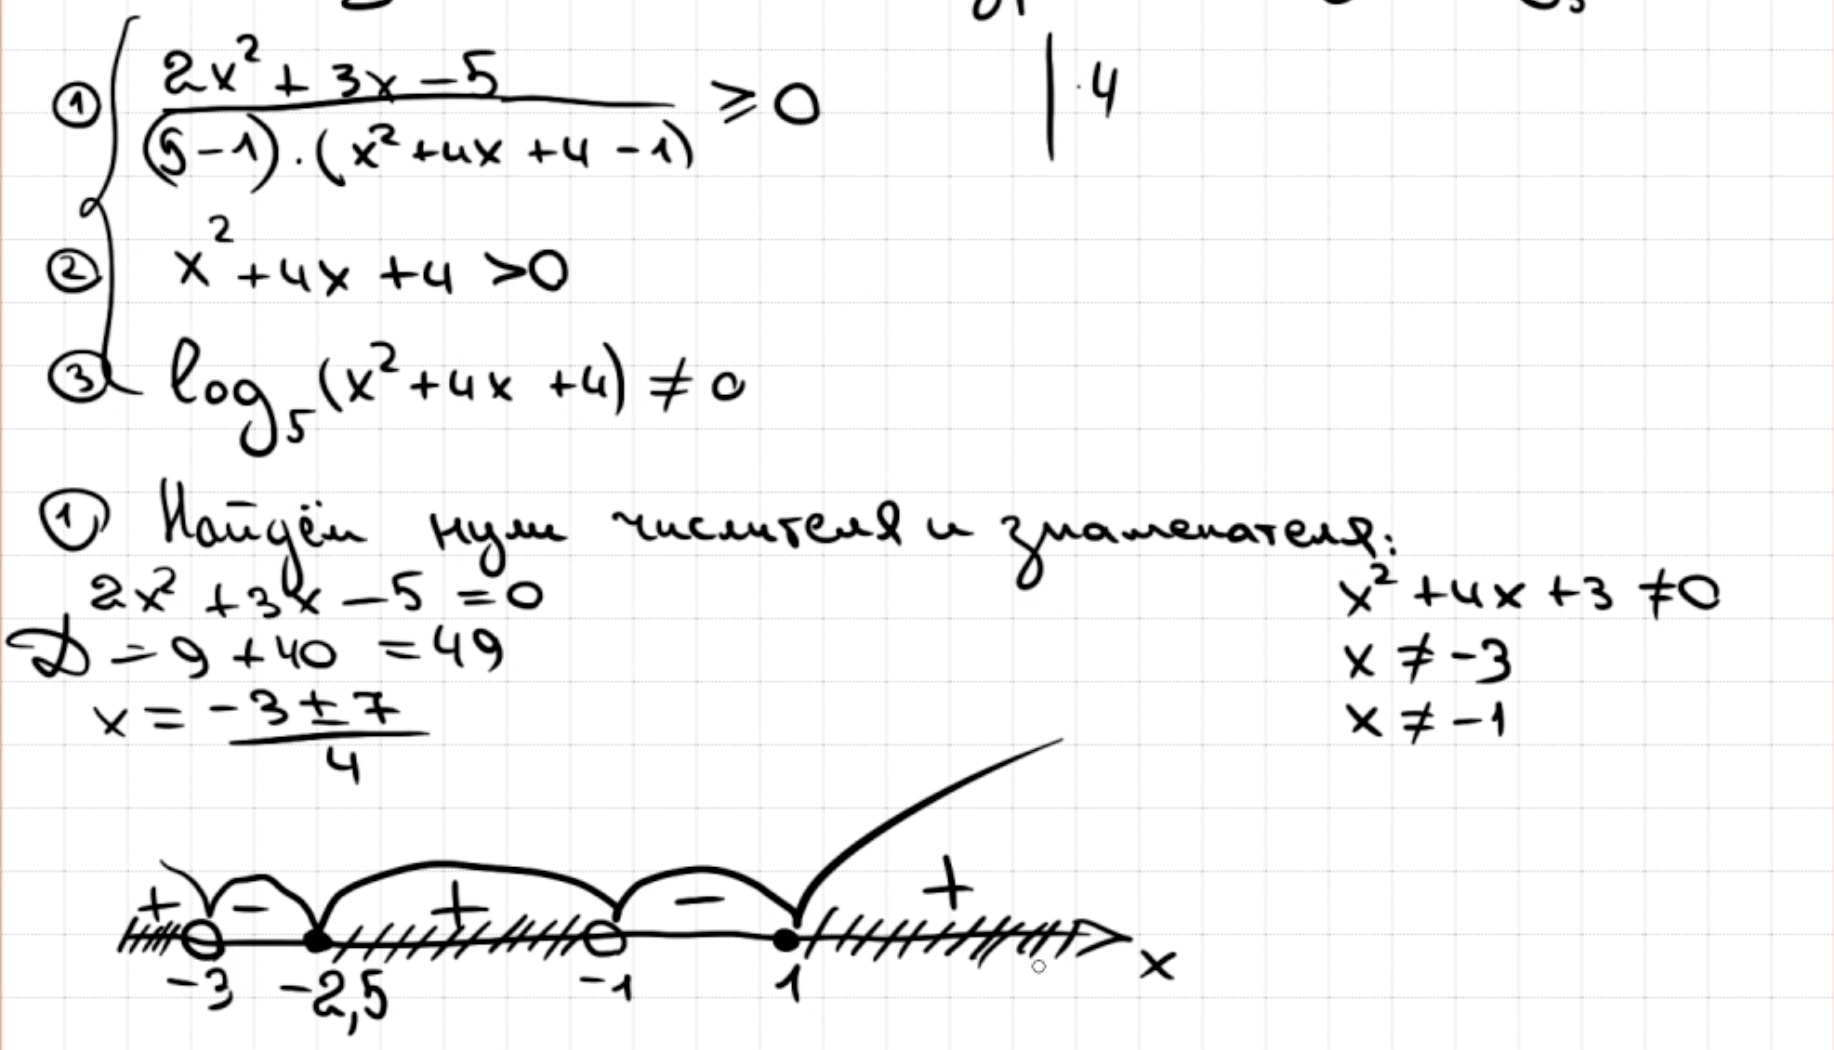 ① 2x² + 3x – 5 / (5 – 1) · (x² + 4x + 4 – 1) ⩾ 0 | · 4
② x² + 4x + 4 > 0
③ log₅ (x² + 4x + 4) ≠ 0
① Найдём нули числителя и знаменателя:
2x² + 3x – 5 = 0
x² + 4x + 3 ≠ 0
D = 9 + 40 = 49
x ≠ –3
x = –3 ± 7 / 4
x ≠ –1
+ – + – +
–3 –2,5 –1 1 x